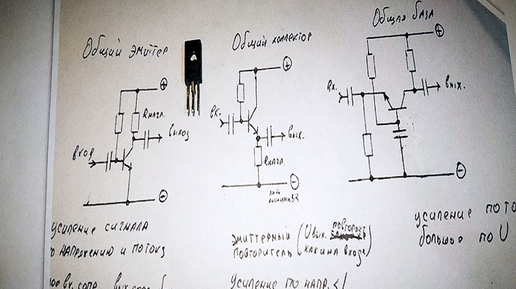 Общий эмиттер
Общий коллектор
Общая база
вход
Rнагр.
выход
вх.
вых.
Rнагр.
Вх.
вых.
+
+
+
−
−
−
усиление сигнала
по напряжению и по току
эмиттерный
повторитель
(Uвых. повторяет
как и на входе)
усиление по напр. < 1
усиление по то
большое по U
вх. сопр.